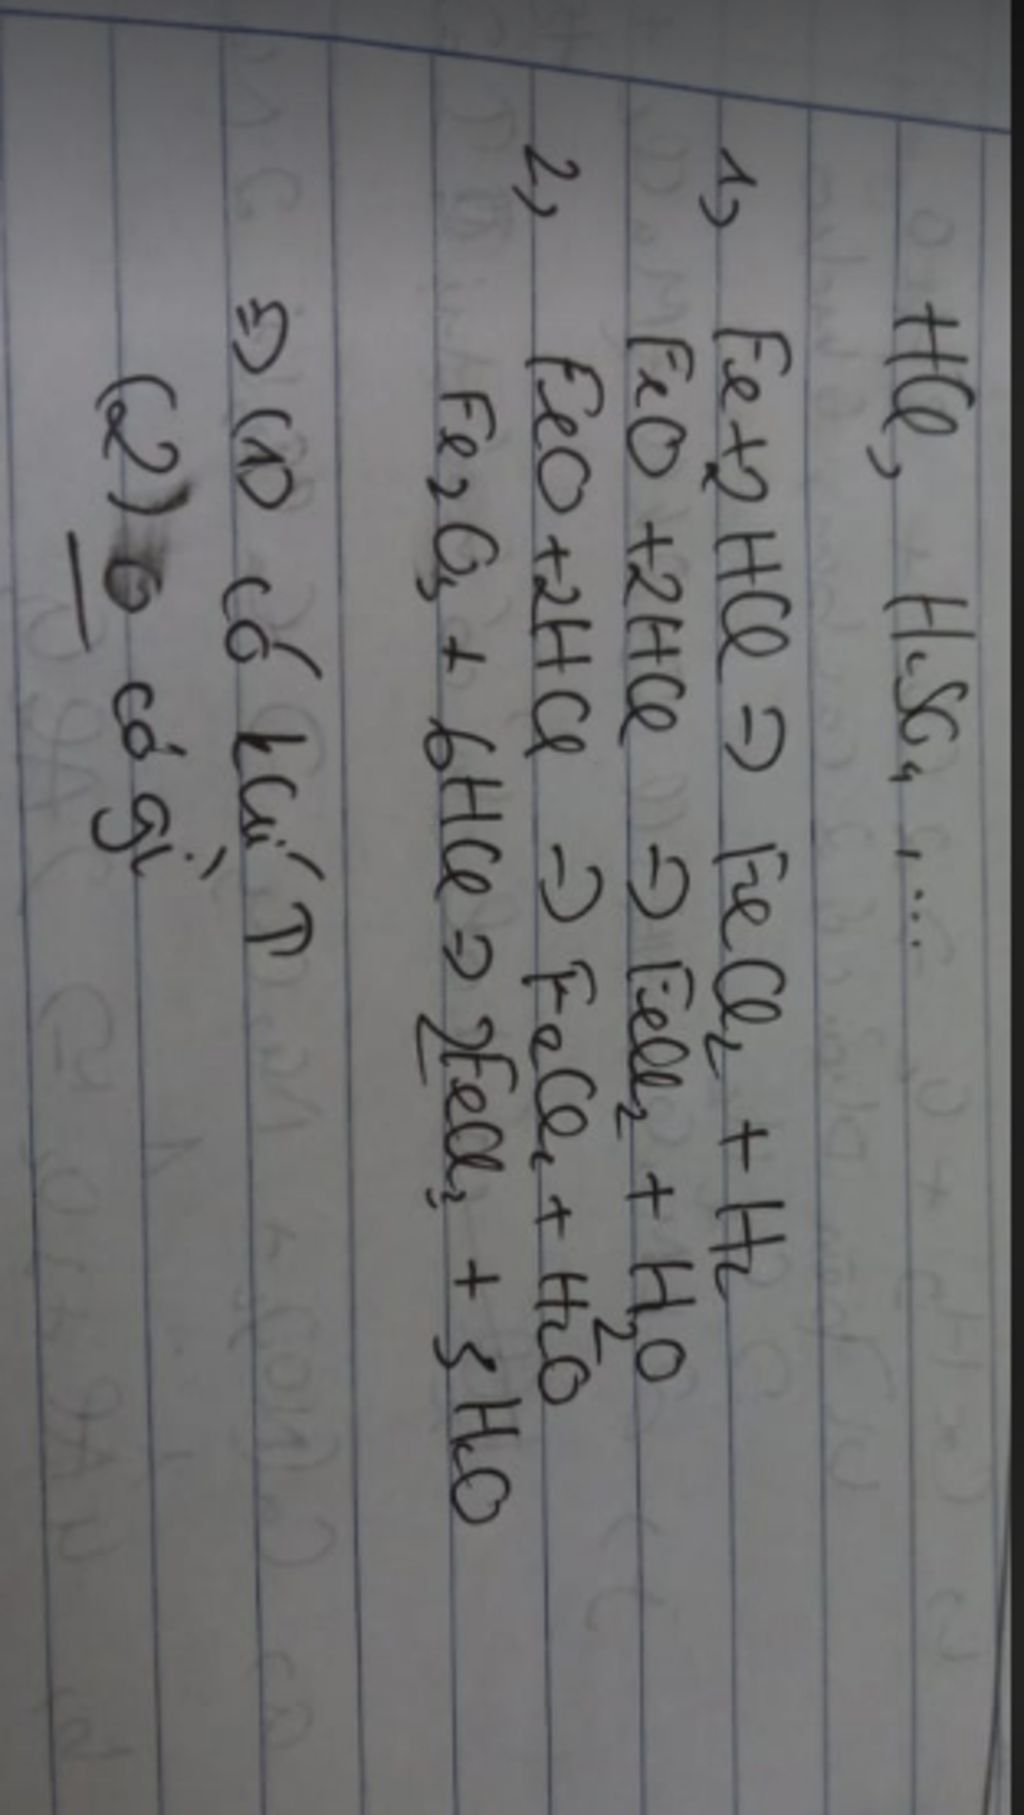 HCl, H₂SO₄, ...
1, Fe + 2HCl => FeCl₂ + H₂
FeO + 2HCl => FeCl₂ + H₂O
2, FeO + 2HCl => FeCl₂ + H₂O
Fe₂O₃ + 6HCl => 2FeCl₃ + 3H₂O
=> (1) có khí ↑
(2) có gì